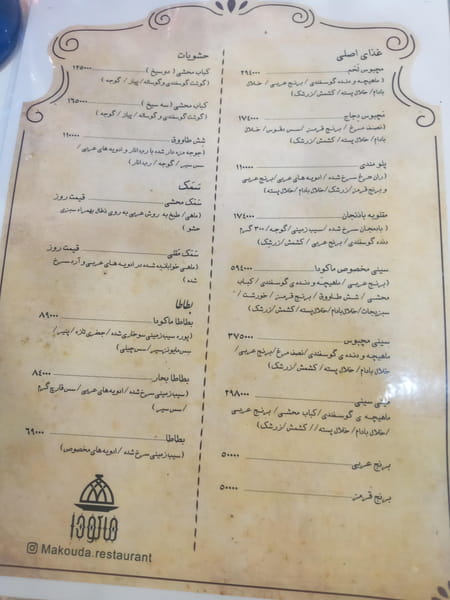 غذای اصلی
مچبوس لَحَم ۲۹۴۰۰۰
( ماهیچه و دنده گوسفندی / برنج عربی / خلال
بادام / خلال پسته / کشمش / زرشک )
مَچبوس دِجاج ۱۷۴۰۰۰
(نصف مرغ / برنج قرمز / سس طقوس / خلال
بادام / خلال پسته / کشمش / زرشک )
پلو مندی ۱۱۰۰۰۰
( ران مرغ سرخ شده / ادویه های عربی / برنج عربی
و برنج قرمز / زرشک / خلال بادام / خلال پسته )
مقلوبه باذنجان ۱۷۴۰۰۰
( بادمجان سرخ شده / سیب زمینی / گوجه / ۳۰۰ گرم
دنده گوسفندی / برنج عربی / کشمش / زرشک )
سینی مخصوص ماکودا ۵۹۴۰۰۰
( برنج عربی / ماهیچه و دنده ی گوسفندی / کباب
محشی / شش طاووق / برنج قرمز / خورشت /
سبزیجات / خلال بادام / خلال پسته / کشمش / زرشک )
سینی مچبوس ۳۷۵۰۰۰
ماهیچه و دنده ی گوسفندی / نصف مرغ / برنج عربی /
خلال بادام / خلال پسته / کشمش / زرشک )
مینی سینی ۲۹۸۰۰۰
ماهیچه ی گوسفندی / کباب محشی / برنج عربی
/ خلال بادام / خلال پسته / / کشمش / زرشک )
برنج عربی ۵۰۰۰۰
برنج قرمز ۵۰۰۰۰
حشویات
کباب محشی ( دو سیخ ) ۱۲۵۰۰۰
( گوشت گوسفندی و گوساله / پیاز / گوجه )
کباب محشی ( سه سیخ ) ۱۶۵۰۰۰
( گوشت گوسفندی و گوساله / پیاز / گوجه )
شش طاووق ۱۱۰۰۰۰
(جوجه مزه دار شده با رب انار و ادویه های عربی /
سس سیر / گوجه / رب انار )
سَمَک
سَمَک محشی قیمت روز
(ماهی / طبخ به روش عربی به روی ذغال بهمراه سبزی
حشو )
سَمَک مَقلی قیمت روز
( ماهی خوابانیده شده در ادویه های عربی و آرد سرخ
شده )
بطاطا
بطاطا ماکودا ۸۹۰۰۰
(پوره سیب زمینی سوخاری شده / جعفری تازه / پنیر /
سس مایونز سیر / سس چیلی )
بطاطا بخار ۸۴۰۰۰
(سیب زمینی سرخ شده / ادویه های عربی / سس قارچ گرم
/ سس سیر )
بطاطا ۶۹۰۰۰
( سیب زمینی سرخ شده / ادویه های مخصوص )
ماکودا
Makouda.restaurant